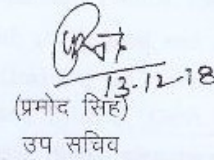 13-12-18
(प्रमोद सिंह)
उप सचिव